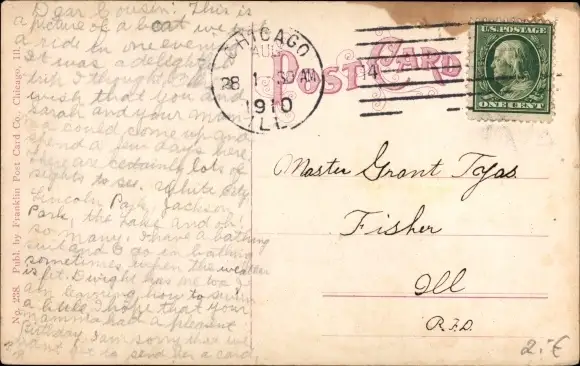 Dear Cousin: This is
a picture of a boat we took
a ride in one evening
It was a delight
trip I thought
wish that you and
Sarah and your mam
ma could come up and
spend a few days here,
There are certainly lots of
sights to see. White City
Lincoln Park, Jackson
Park, the Lake and oh
so many. I have a bathing
suit and I go in bathing
sometimes when the weather
is fit. Dwight has one too. I
am learning how to swim
a little. I hope that your
mamma had a pleasant
birthday. I am sorry that we
forgot to send her a card.
No. 228. Publ. by Franklin Post Card Co., Chicago, Ill.
CHICAGO
AUG
28 1-30AM
1910
ILL
14
POST CARD
U.S. POSTAGE
ONE CENT
Master Grant Tyas
Fisher
Ill
R.F.D.
2.-€